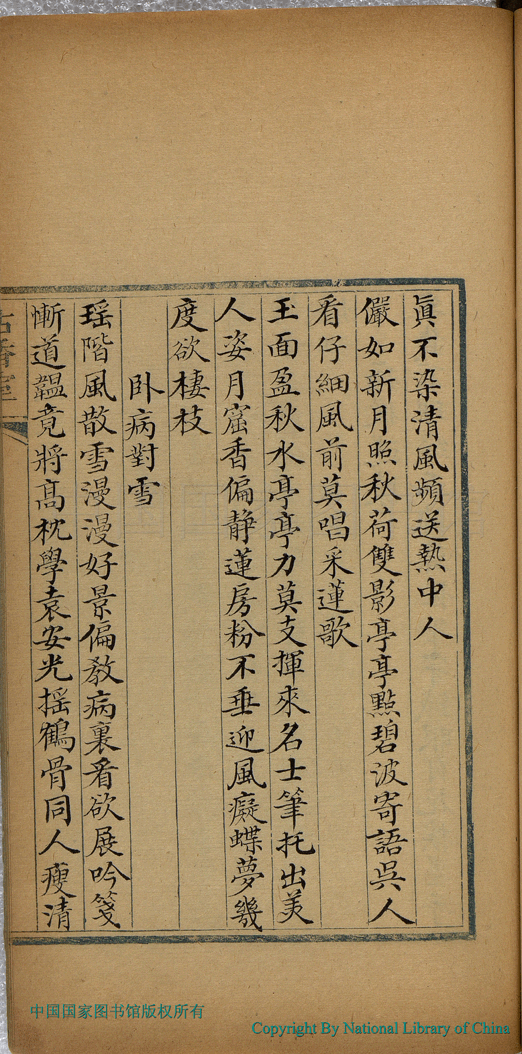 真不染清風頻送熱中人
儼如新月照秋荷雙影亭亭點碧波寄語吳人
看仔細風前莫唱采蓮歌
玉面盈秋水亭亭力莫支揮來名士筆托出美
人姿月窟香偏静蓮房粉不垂迎風癡蝶夢幾
度欲棲枝
卧病對雪
瑶階風散雪漫漫好景偏教病裏看欲展吟箋
慚道韞竟將高枕學袁安光摇鶴骨同人瘦清
中国国家图书馆版权所有
Copyright By National Library of China